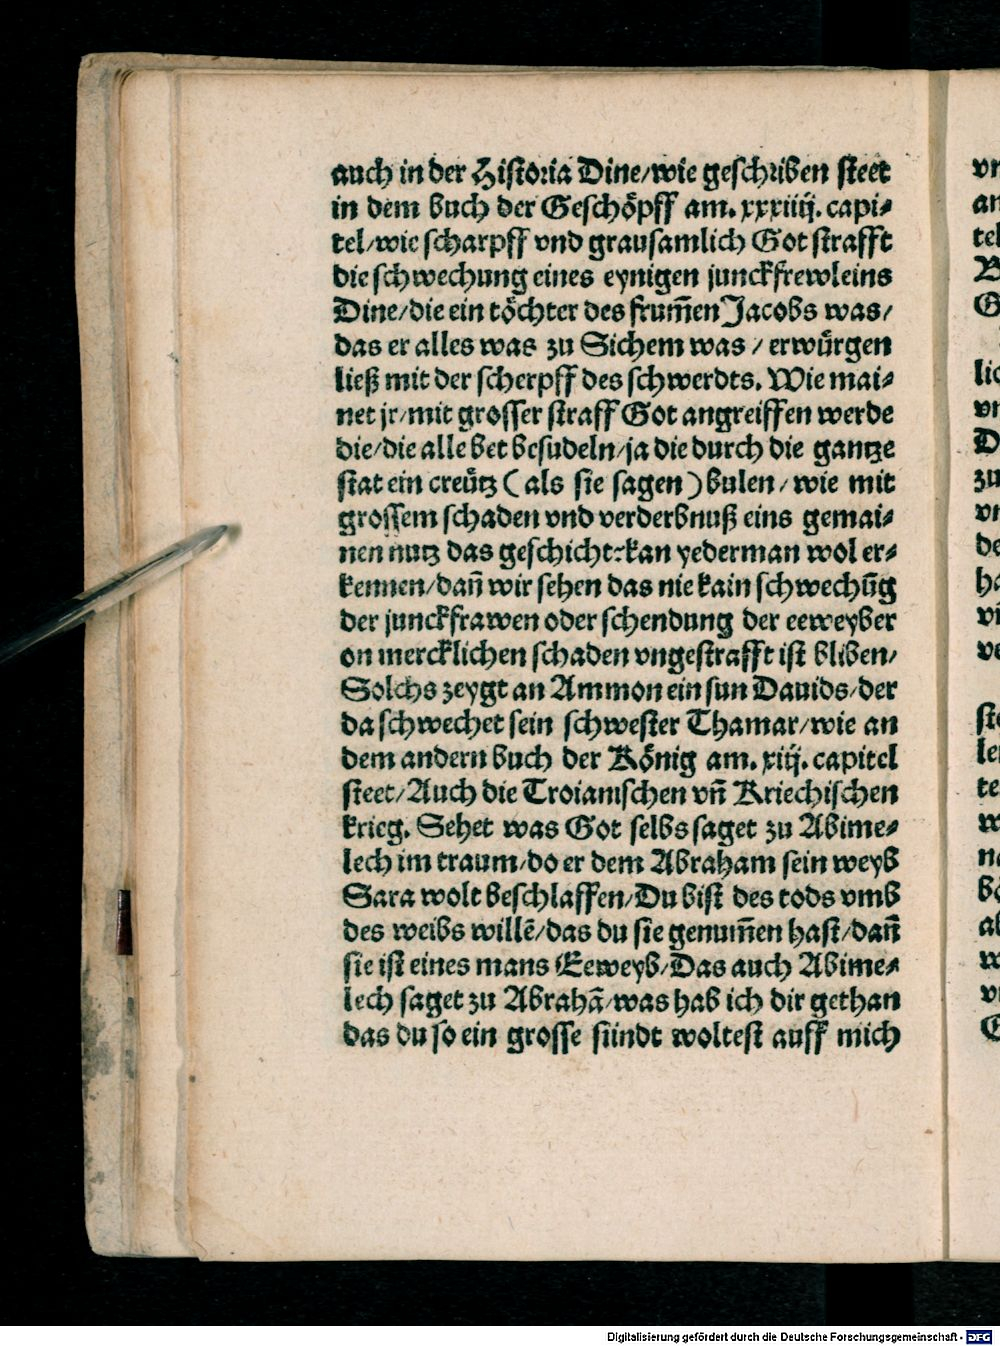 auch in der Historia Dine/wie geschriben steet
in dem buch der Geschöpff am. xxxiiij. capi⸗
tel/wie scharpff vnd grausamlich Got strafft
die schwechung eines eynigen junckfrewleins
Dine/die ein töchter des frum̃en Jacobs was/
das er alles was zu Sichem was / erwürgen
ließ mit der scherpff des schwerdts. Wie mai⸗
net jr/mit grosser straff Got angreiffen werde
die/die alle bet besudeln/ja die durch die gantze
stat ein creütz (als sie sagen) bulen/wie mit
grossem schaden vnd verderbnuß eins gemai⸗
nen nutz das geschicht:kan yederman wol er⸗
kennen/dañ wir sehen das nie kain schwechũg
der junckfrawen oder schendung der eeweyber
on mercklichen schaden vngestrafft ist bliben/
Solchs zeygt an Ammon ein sun Dauids/der
da schwechet sein schwester Thamar/wie an
dem andern buch der König am. xiij. capitel
steet/Auch die Troianischen vñ Kriechischen
krieg. Sehet was Got selbs saget zu Abime⸗
lech im traum/do er dem Abraham sein weyb
Sara wolt beschlaffen/Du bist des tods vmb
des weibs willẽ/das du sie genum̃en hast/dañ
sie ist eines mans Eeweyb/Das auch Abime⸗
lech saget zu Abrahã/was hab ich dir gethan
das du so ein grosse sündt woltest auff mich
vn
an
tel
G
lic
vn
D
zu
vn
de
ha
vi
ve
ste
le
te
w
na
bö
al
w
Digitalisierung gefördert durch die Deutsche Forschungsgemeinschaft - DFG